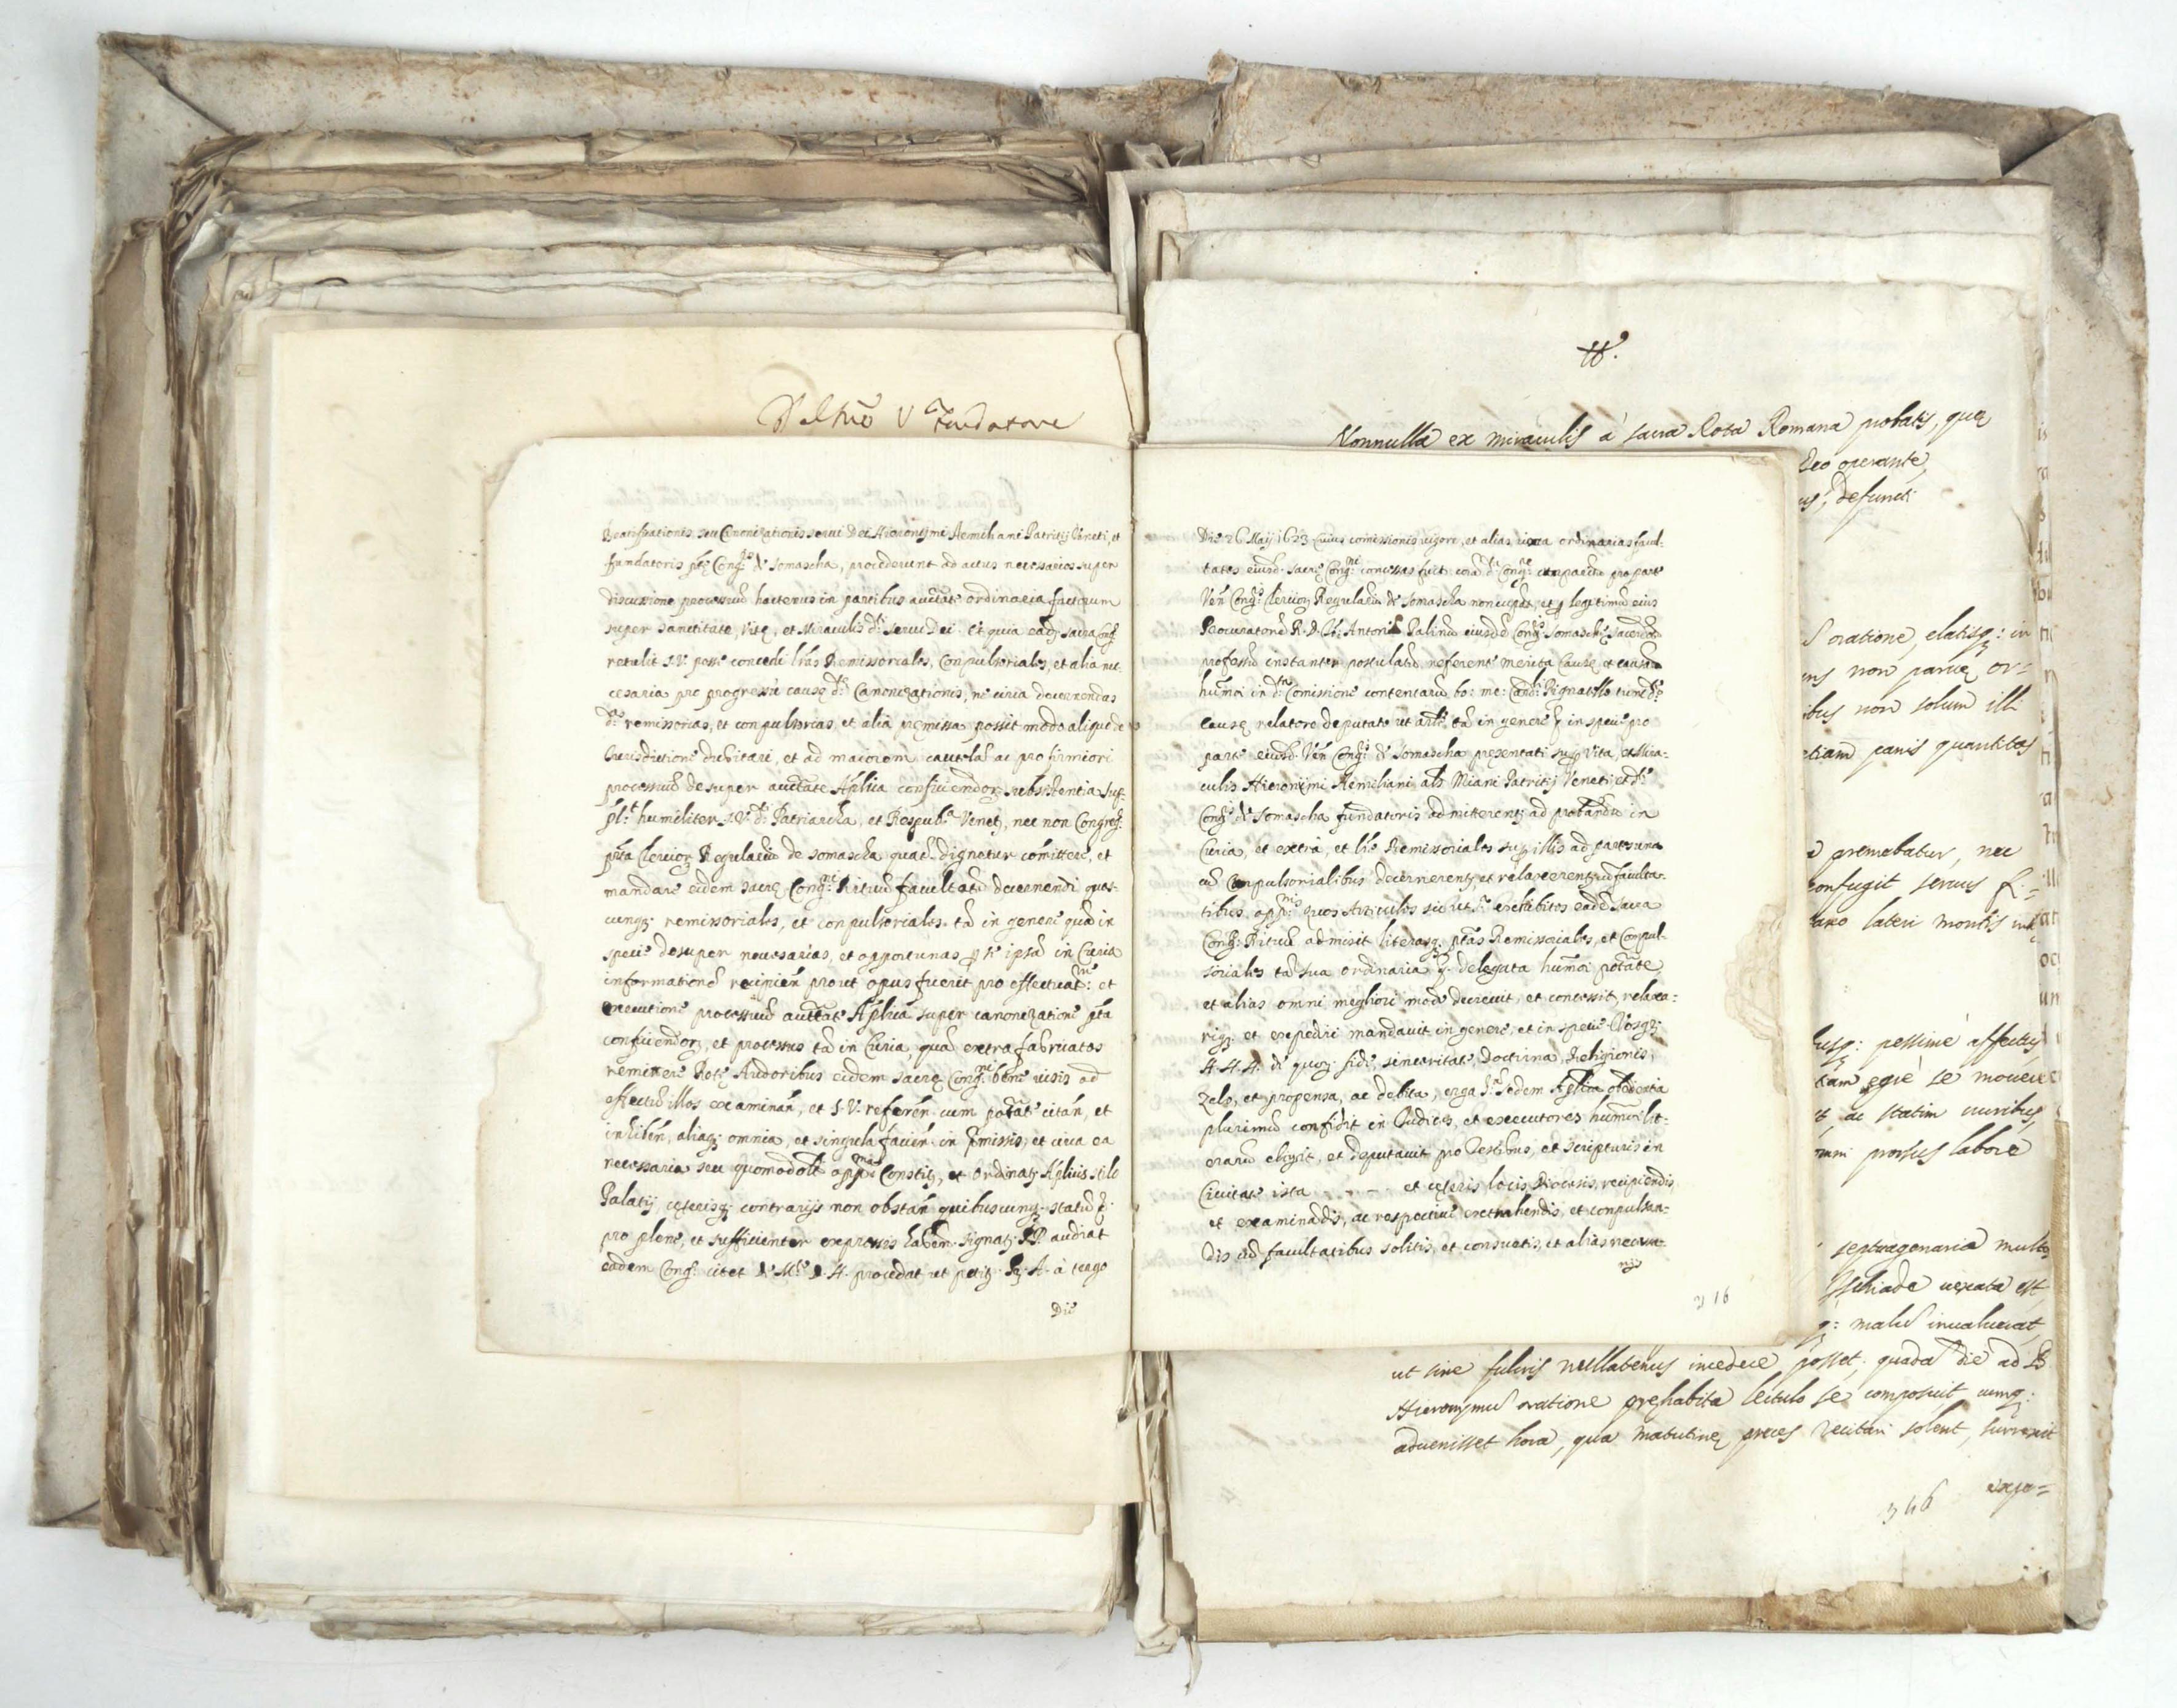 Del Nro V Fundatore
Beatificationis, seu Canonizationis serui Dei Hieronymi Aemiliani Patritij Veneti, et
fundatoris ptę Congnis de Somascha, procederent ad actus necessarios super
discussione processuũ hactenus in partibus auctate ordinaria factorum
super sanctitate, Vitę, et Miraculis di serui Dei. Et quia eadẽ sacra Cong.
retulit S.V. posse concedi lras Remissoriales, Conpulsoriales, et alia ne-
cesaria pro progressu causę dę Canonizationis, ne circa decernendas
das remissorias, et conpulsorias, et alia premissa possit modo aliquo de
Iurisdictione dubitari, et ad maiorem cautelã ac pro firmiori
processuũ desuper auctate Aplica conficiendorz subsistentia sup-
plt humiliter S.V. ds Patriarcha, et Respuba Veneta, nec non Congreg.
pta Clericorz Regulariũ de Somascha quats dignetur comittere, et
mandare eidem sacrę Congni Rituũ facultatẽ decernendi quas-
cunqz remissoriales, et conpulsoriales tã in genere quã in
specie desuper necessarias, et opportunas, p se ipsã in Curia
informationẽ recipien prout opus fuerit pro effectuat: et
executione processuũ auctate Aplica super canonizatione pta
conficiendorz, et processus tã in Curia, quã extra fabricatos
remittere Rotę Auditoribus eidem sacrę Congni bene uisis ad
effectũ illos examinan, et S.V. referen cum potate citan, et
inhiben, aliaqz omnia, et singula facien in pmissis, et circa ea
necessaria seu quomodolt opportuna Constitz, et Ordinatz Aplicis stilo
Palatij cęterisqz contrarijs non obstan quibuscunqz statũ p.
pro plene, et sufficienter expressis haben. signatz PP. audiat
eadem Cong. citet et Mte S. H. procedat ut petitz A. à tergo
Die
Die 26 Maij 1623 Cuius comissionis uigore, et alias iuxta ordinarias facul-
tates eiusd. sacrę Congni concessas fuit corã dta Congne conparitũ pro parte
Ven Congnis Clericorz Regulariũ de Somascha noncupat, et p legitimũ eius
Procuratorẽ R. D. Antoniũ Palinũ eiusdẽ Congnis Somaschę sacerdotẽ
professũ instanter postulatũ, referente merita Causę, et causarũ
humoi in dta Comissione contentarũ bo: me: Cardli Pignatello tunc dę
Causę relatore deputato ut arli tã in genere q in specie pro
parte eiusd. Ven Congnis de Somascha presentati sup Vita, et Mira-
culis Hieronimi Aemiliani als Miani Patritij Veneti, et dę
Congnis de Somascha fundatoris admitterentz ad probandũ in
Curia, et extra, et lrẽ Remissoriales sup illis ad partes una
cũ Conpulsorialibus decernerentz, et relaxerentz cũ faculta-
tibus oppnis quos Articulos sic ut pr exhibitos eadẽ Sacra
Cong. Rituũ admisit literasqz ptas Remissoriales, et Conpul-
soriales tã sua ordinaria q delegata humoi potate,
et alias omni megliori modo decreuit, et concessit, relaxa=
riqz et expediri mandauit in genere, et in specie Vosqz
A. A. A. de quorz fide, sinceritate, Doctrina, Religionis,
Zelo, et propensa, ac debita, erga Sm sedem Aplica obedientia
plurimũ confidit in Iudices, et executores humoi lit-
erarũ elegit, et deputauit, pro Testibus, et scripturis in
Ciuitate ista - - - - et cęteris locis Diocesis, recipiendis,
et examinandis, ac respectiuè extrahendis, et conpulsan-
dis cũ facultatibus solitis, et consuetis, et alias neces-
316
Nonnulla ex miraculis à sacra Rota Romana probatis, quę
Deo operante,
us, defuncti
oratione, elatisqz: in
ens non paruę or=
ibus non solum illi
etiam panis quantitas
premebatur, nec
confugit seruus
axo lateri montis
usqz: pessimè affectus
tam egrè se mouere
ac statim uiribus
omni prorsus labore
septuagenaria mult
Ischiade uexata est
qz: malũ inualuerat
ut sine fulcris nullatenus incedere posset; quadã die ad B.
Hieronymũ oratione pręhabita lectulo se composuit, cumqz:
aduenisset hora, qua matutinę preces recitari solent, surrexit
expe=
346